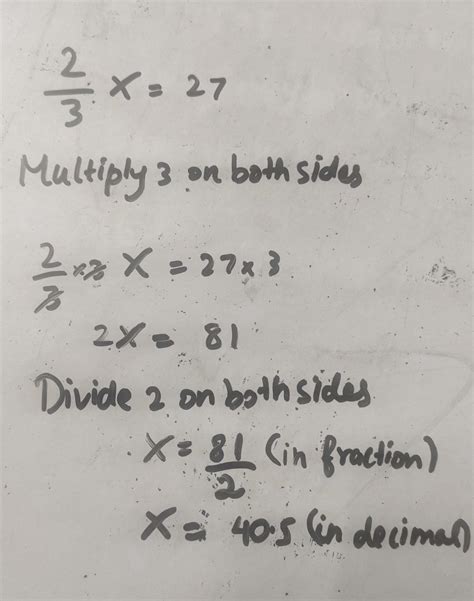 2/3 x = 27
Multiply 3 on both sides
2/3 × 3 x = 27 × 3
2x = 81
Divide 2 on both sides
x = 81/2 (in fraction)
x = 40.5 (in decimal)